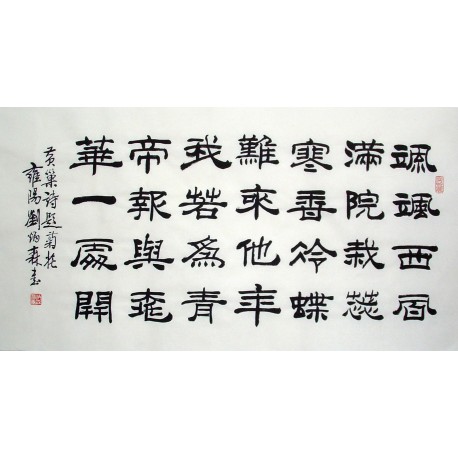 颯颯西風
滿院栽蕊
寒香冷蝶
難來他年
我若爲青
帝報與桃
華一處開
黃巢詩題菊花
雍陽劉炳森書